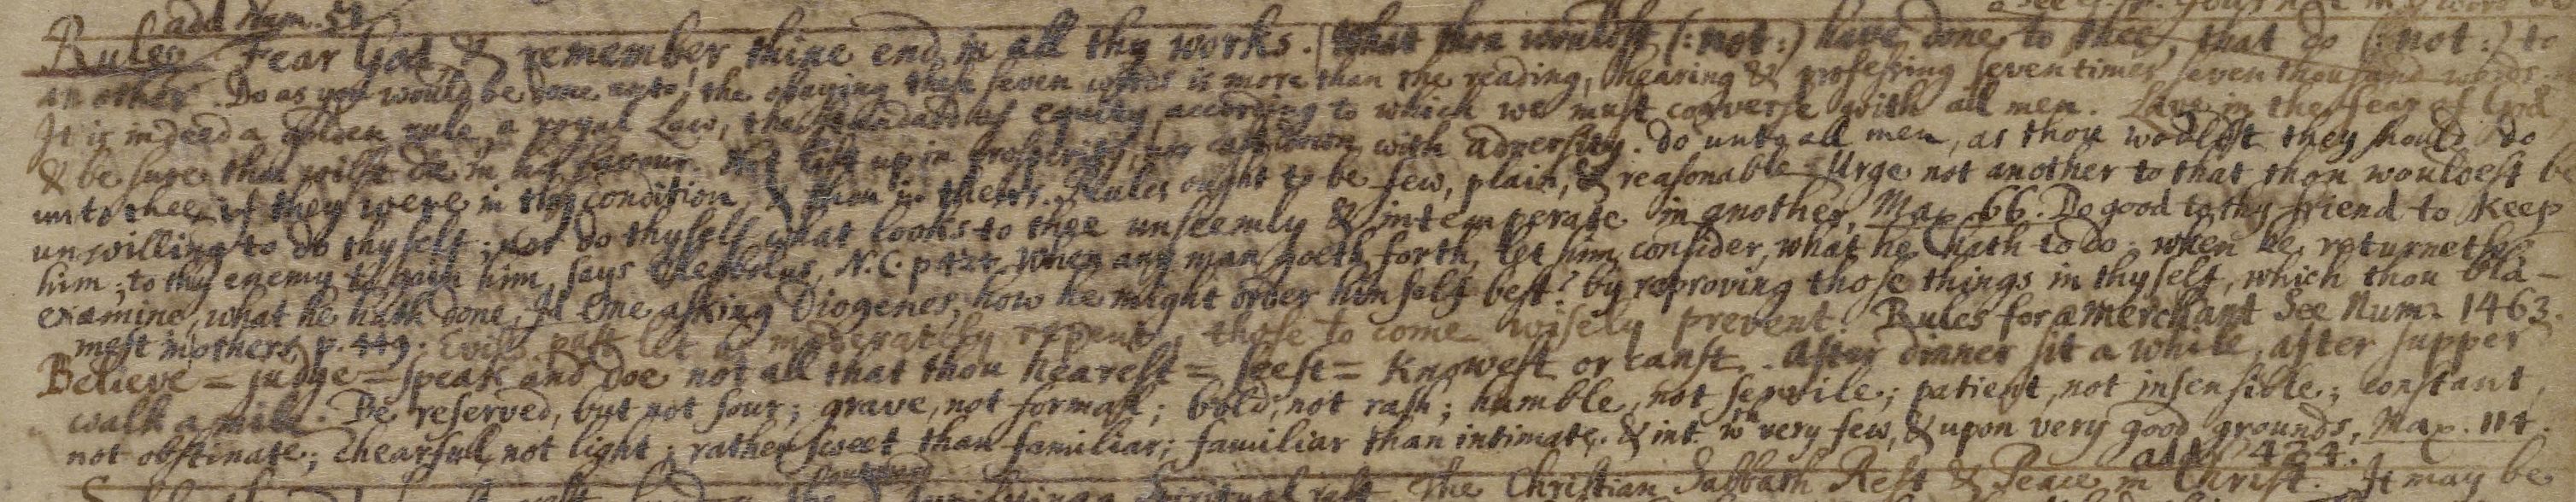 add Num. 52
Rules Fear God, & remember thine end in all thy works. What thou wouldst (: not :) have done to thee, that do (: not :) to
another. Do as you would be done unto! the obeying these seven words is more than the reading, hearing & professing seven times seven thousand words.
It is indeed a golden rule, a royal Law, the standard of equity, according to which we must converse with all men. Live in the fear of God,
& be sure thou wilst die in his favour. Not lift up in prosperity, nor cast down with adversity. Do unto all men, as thou wouldst they should do
unto thee, if they were in thy condition, & thou in theirs. Rules ought to be few, plain, & reasonable. Urge not another to that thou wouldest be
unwilling to do thyself; nor do thyself what looks to thee unseemly & intemperate in another, Max. 66. Do good to thy friend to keep
him; to thy enemy to gain him, says Cleobulus, N.C. p. 424. When any man goeth forth, let him consider, what he hath to do; when he returneth,
examine, what he hath done, Id. One asking Diogenes, how he might order himself best? by reproving those things in thyself, which thou bla-
mest in others, p. 449. Evils past let us moderately repent, those to come wisely prevent. Rules for a merchant See Num. 1463.
Believe = judge = speak and doe not all that thou hearest = seest = knowest or canst. After dinner sit a while, after supper
walk a mile. Be reserved, but not sour; grave, not formal; bold, not rash; humble, not servile; patient, not insensible; constant,
not obstinate; chearful, not light; rather sweet than familiar; familiar than intimate; & int. wth very few, & upon very good grounds, Max. 114.
add 424.
outward
Spiritual rest. The Christian Sabbath Rest & Peace in Christ. It may be